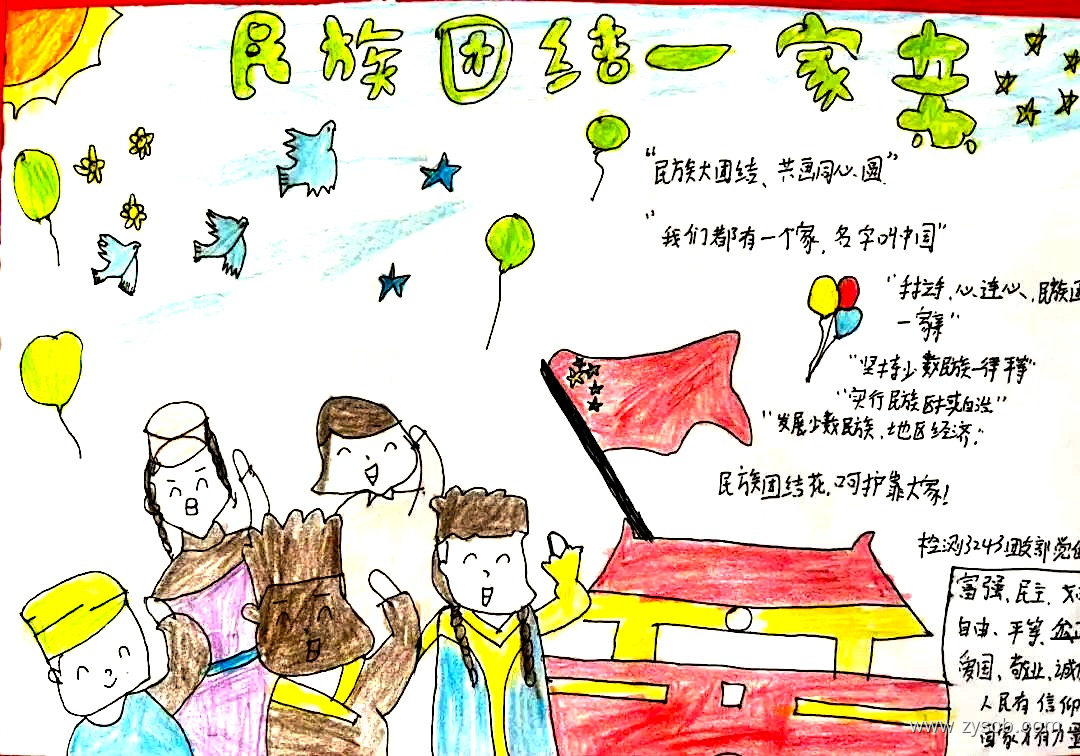 民族团结一家亲
“民族大团结、共画同心圆”
“我们都有一个家，名字叫中国”
“手拉手，心连心，民族团
一家亲”
“坚持少数民族一律平等”
“实行民族区域自治”
“发展少数民族，地区经济，”
民族团结花，呵护靠大家！
检测3243团支部
富强、民主、文
自由、平等、公正
爱国、敬业、诚信
人民有信仰
国家才有力量
www.zyscb.com